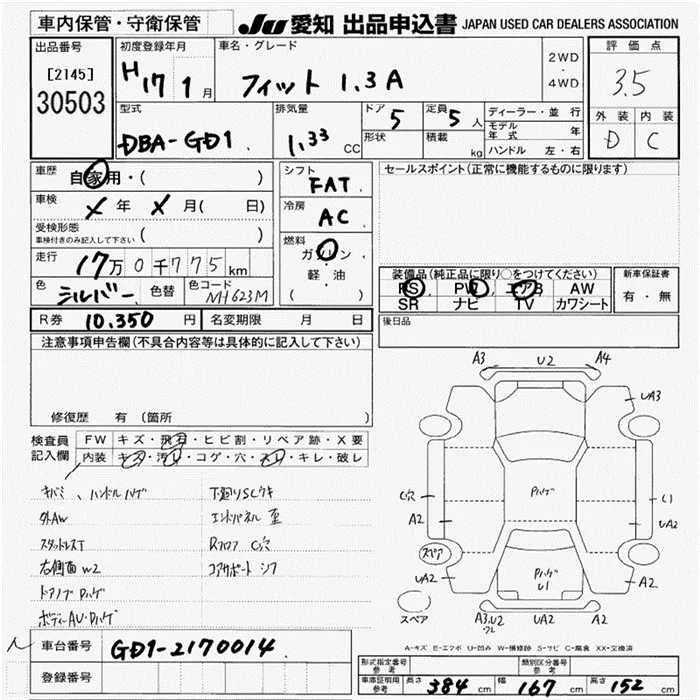 車内保管・守衛保管
JU 愛知 出品申込書 JAPAN USED CAR DEALERS ASSOCIATION
出品番号
[2145]
30503
初度登録年月
H17 1月
車名・グレード
フィット 1.3A
2WD
・
4WD
評価点
3.5
外装 内装
D C
型式
DBA-GD1
排気量
1.33 CC
ドア 5
定員 5人
形状
積載 kg
ディーラー・並行
モデル年式 年
ハンドル 左・右
車歴
自家用・( )
車検
X年 X月( 日)
受検形態
車検付きのみ記入して下さい ( )
走行
17万0千775km
色 シルバー
色替
色コード NH623M
シフト
FAT
冷房
AC
燃料
ガソリン
・
軽油
( )
セールスポイント(正常に機能するものに限ります)
装備品(純正品に限り○をつけてください)
PS PW エアB AW
SR ナビ TV カワシート
新車保証書
有・無
R券 10,350円
名変期限 月 日
後日品
注意事項申告欄(不具合内容等は具体的に記入して下さい)
修復歴 有(箇所
検査員
記入欄
FW キズ・飛石・ヒビ割・リペア跡・X要
内装 キズ・汚レ・コゲ・穴・スレ・キレ・破レ
キバミ、ハンドルハゲ
外AW
スタッドレスT
右側面W2
ドアノブPハゲ
ボディーAU・Pハゲ
下廻りSCウキ
エンドパネル歪
Rフロア C穴
コアサポートシワ
A3 U2 A4
UA3
C穴
A2
Pハゲ
U1
UA2
スペア
UA2
Pハゲ
U1
A2
スペア
A3.U2
ワレ
UA2
A2
A-キズ E-エクボ U-凹み W-補修跡 S-サビ C-腐食 XX-交換済
車台番号
GD1-2170014
登録番号
形式指定番号
参考
類別区分番号
参考
車庫証明用
参考
長さ 384cm
幅 167cm
高さ 152cm